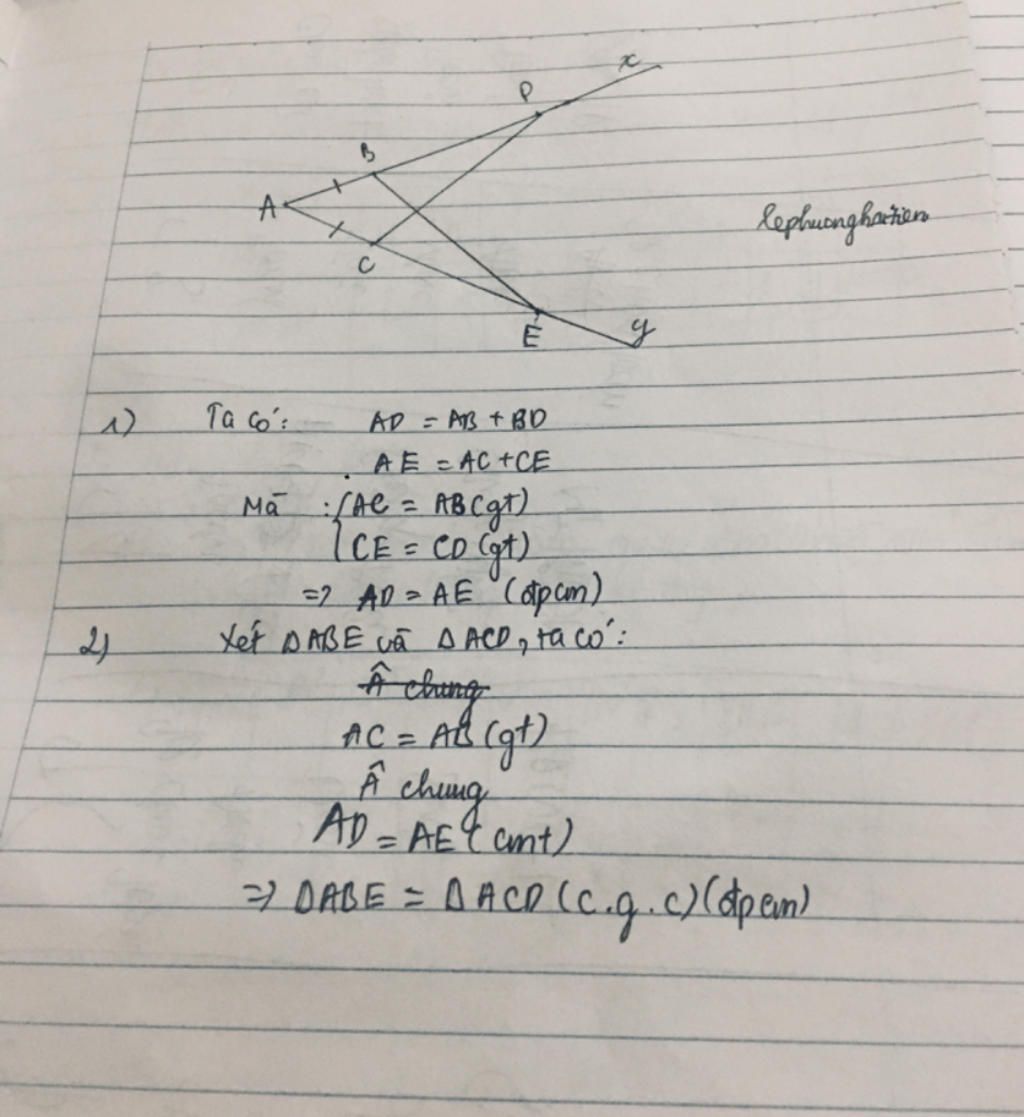 x
D
B
A
C
E
y
lephuonghastien
1) Ta có: AD = AB + BD
AE = AC + CE
Mà : { AC = AB (gt)
CE = CD (gt)
=> AD = AE (đpcm)
2) Xét ΔABE và ΔACD, ta có:
Â chung
AC = AB (gt)
Â chung
AD = AE (cmt)
=> ΔABE = ΔACD (c.g.c) (đpcm)